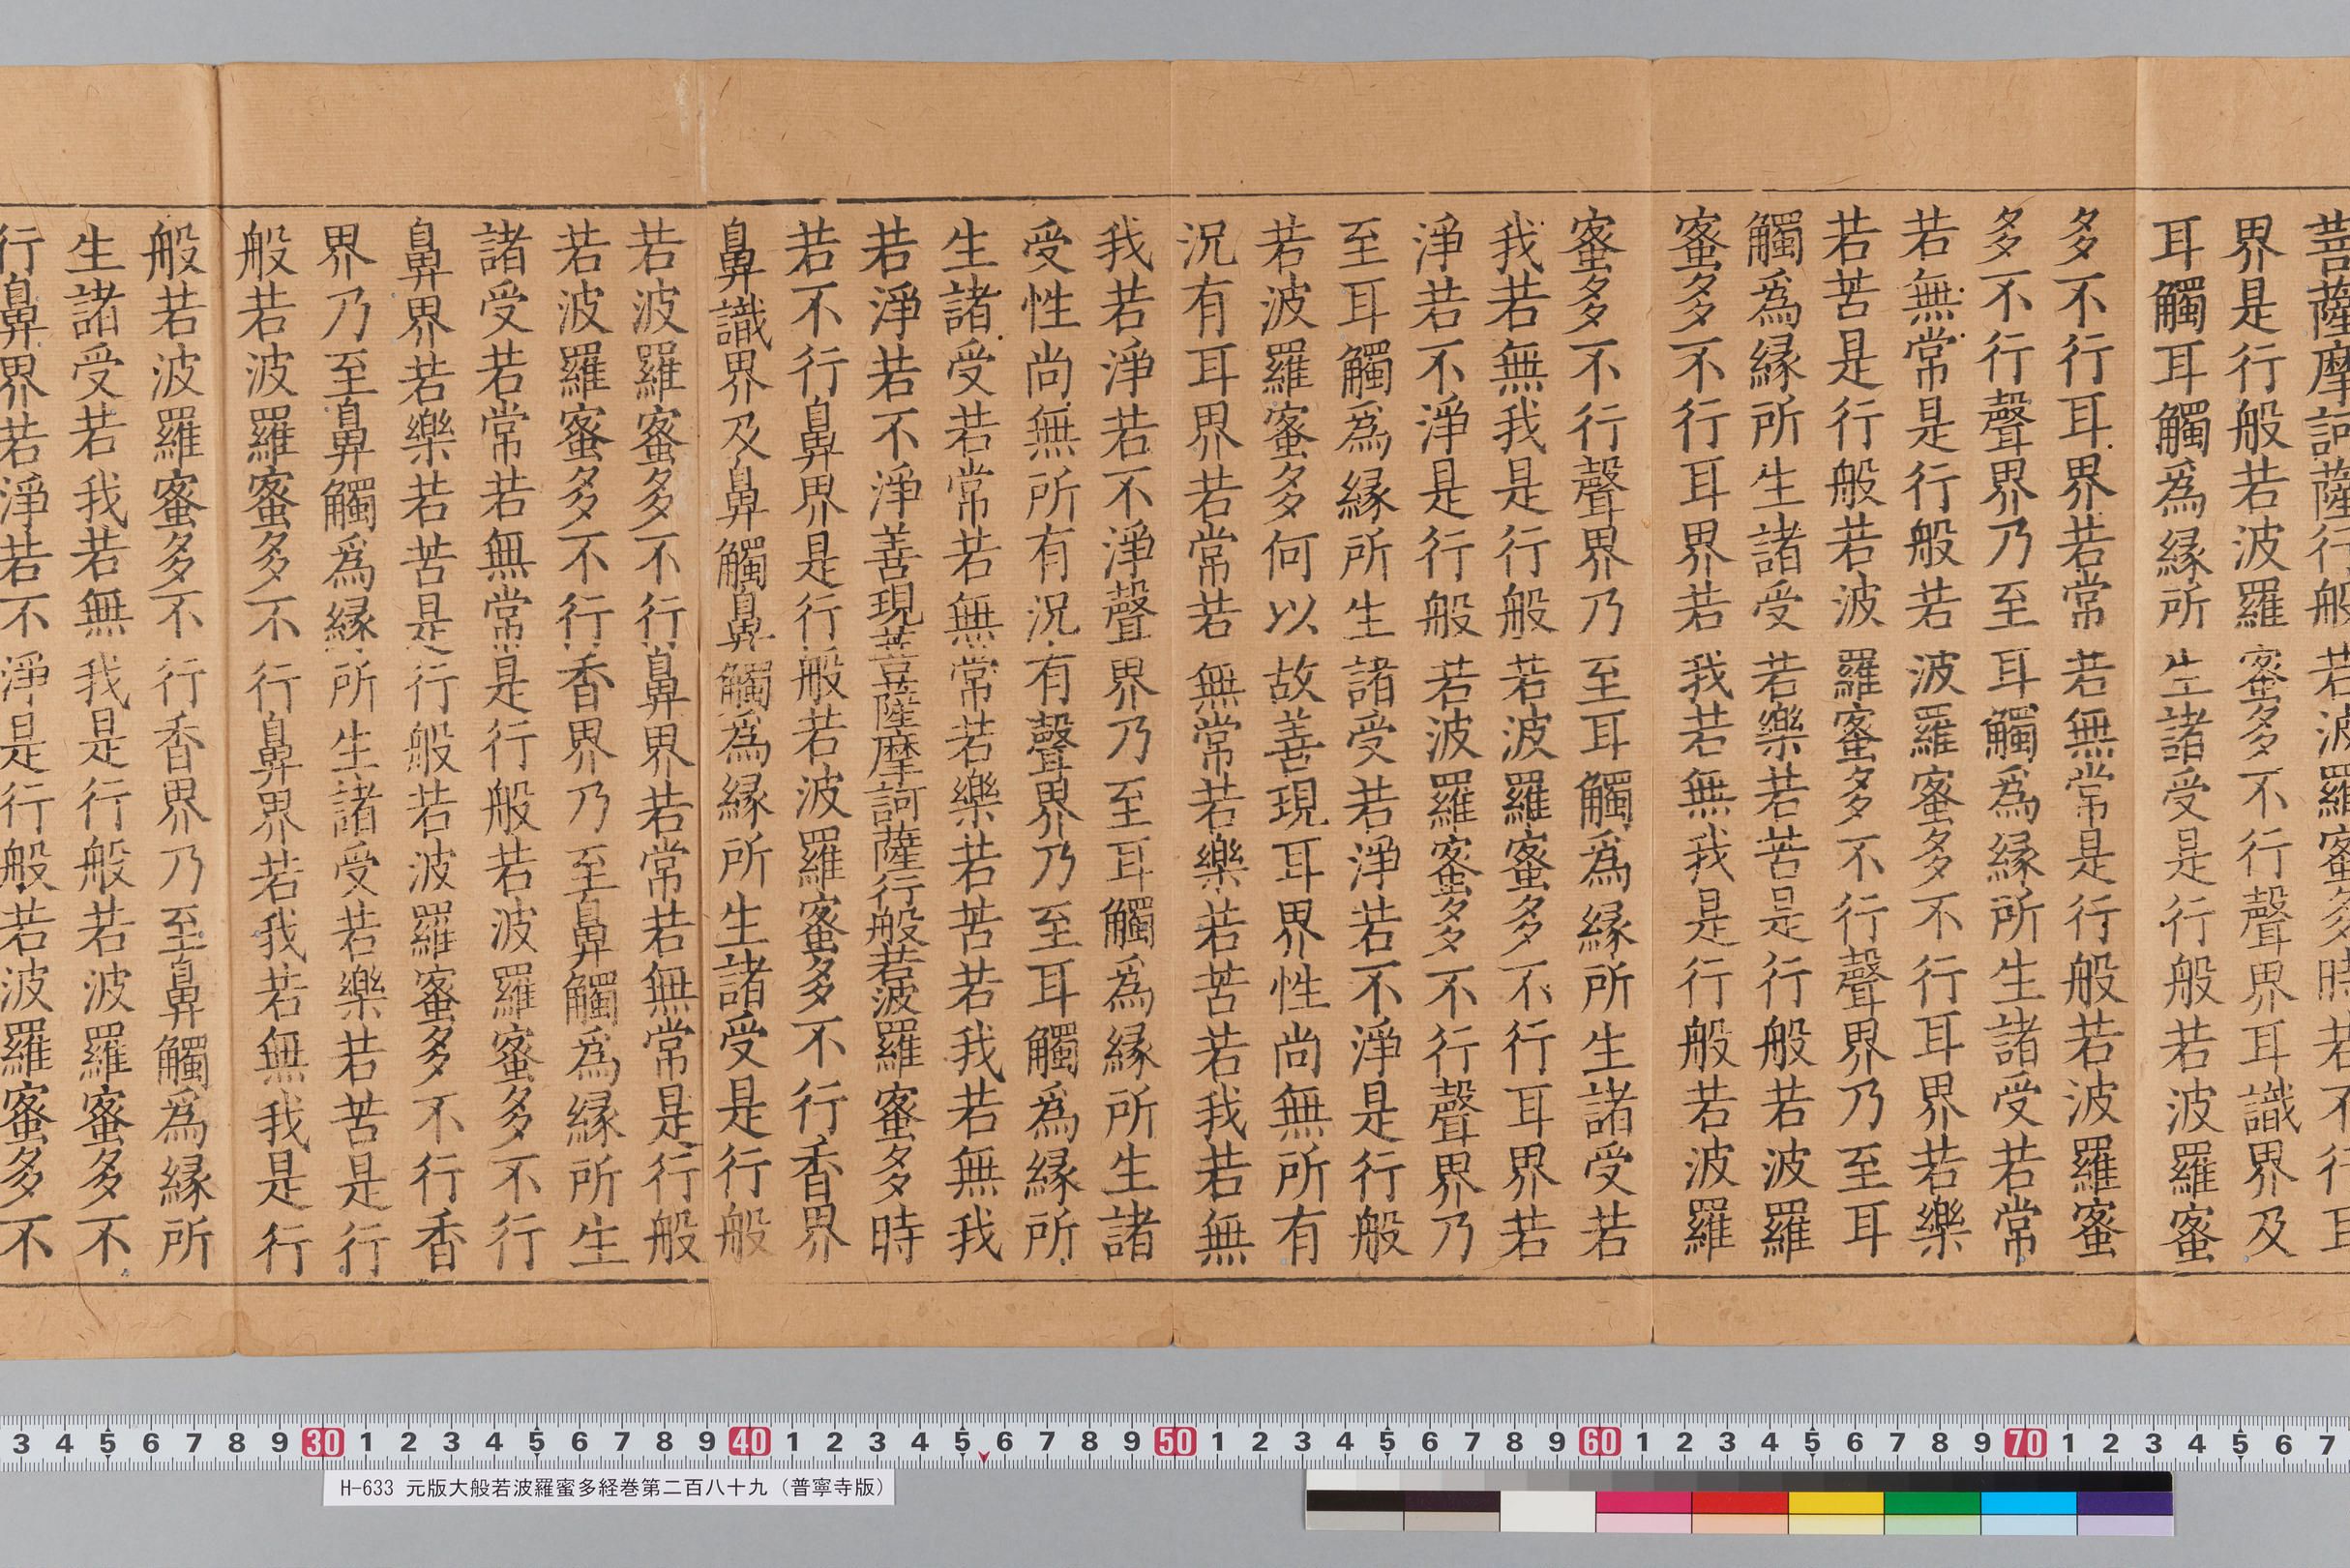 菩薩摩訶薩行般若波羅蜜多時若不行耳
界是行般若波羅蜜多不行聲界耳識界及
耳觸耳觸爲縁所生諸受是行般若波羅蜜
多不行耳界若常若無常是行般若波羅蜜
多不行聲界乃至耳觸爲縁所生諸受若常
若無常是行般若波羅蜜多不行耳界若樂
若苦是行般若波羅蜜多不行聲界乃至耳
觸爲縁所生諸受若樂若苦是行般若波羅
蜜多不行耳界若我若無我是行般若波羅
蜜多不行聲界乃至耳觸爲縁所生諸受若
我若無我是行般若波羅蜜多不行耳界若
淨若不淨是行般若波羅蜜多不行聲界乃
至耳觸爲縁所生諸受若淨若不淨是行般
若波羅蜜多何以故善現耳界性尚無所有
況有耳界若常若無常若樂若苦若我若無
我若淨若不淨聲界乃至耳觸爲縁所生諸
受性尚無所有況有聲界乃至耳觸爲縁所
生諸受若常若無常若樂若苦若我若無我
若淨若不淨善現菩薩摩訶薩行般若波羅蜜多時
若不行鼻界是行般若波羅蜜多不行香界
鼻識界及鼻觸鼻觸爲縁所生諸受是行般
若波羅蜜多不行鼻界若常若無常是行般
若波羅蜜多不行香界乃至鼻觸爲縁所生
諸受若常若無常是行般若波羅蜜多不行
鼻界若樂若苦是行般若波羅蜜多不行香
界乃至鼻觸爲縁所生諸受若樂若苦是行
般若波羅蜜多不行鼻界若我若無我是行
般若波羅蜜多不行香界乃至鼻觸爲縁所
生諸受若我若無我是行般若波羅蜜多不
行鼻界若淨若不淨是行般若波羅蜜多不
3 4 5 6 7 8 9 30 1 2 3 4 5 6 7 8 9 40 1 2 3 4 5 6 7 8 9 50 1 2 3 4 5 6 7 8 9 60 1 2 3 4 5 6 7 8 9 70 1 2 3 4 5 6 7
H-633 元版大般若波羅蜜多経巻第二百八十九（普寧寺版）